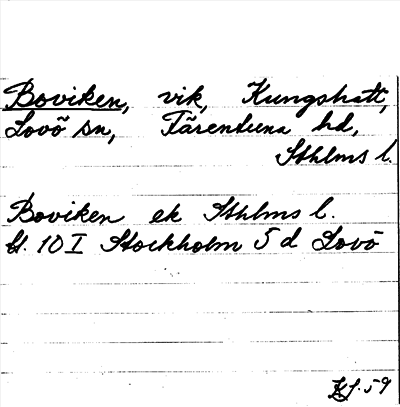 Boviken, vik, Kungshatt,
Lovö sn, Färentuna hd,
Sthlms l.
Boviken ek Sthlms l.
bl. 10 I Stockholm 5 d Lovö
59